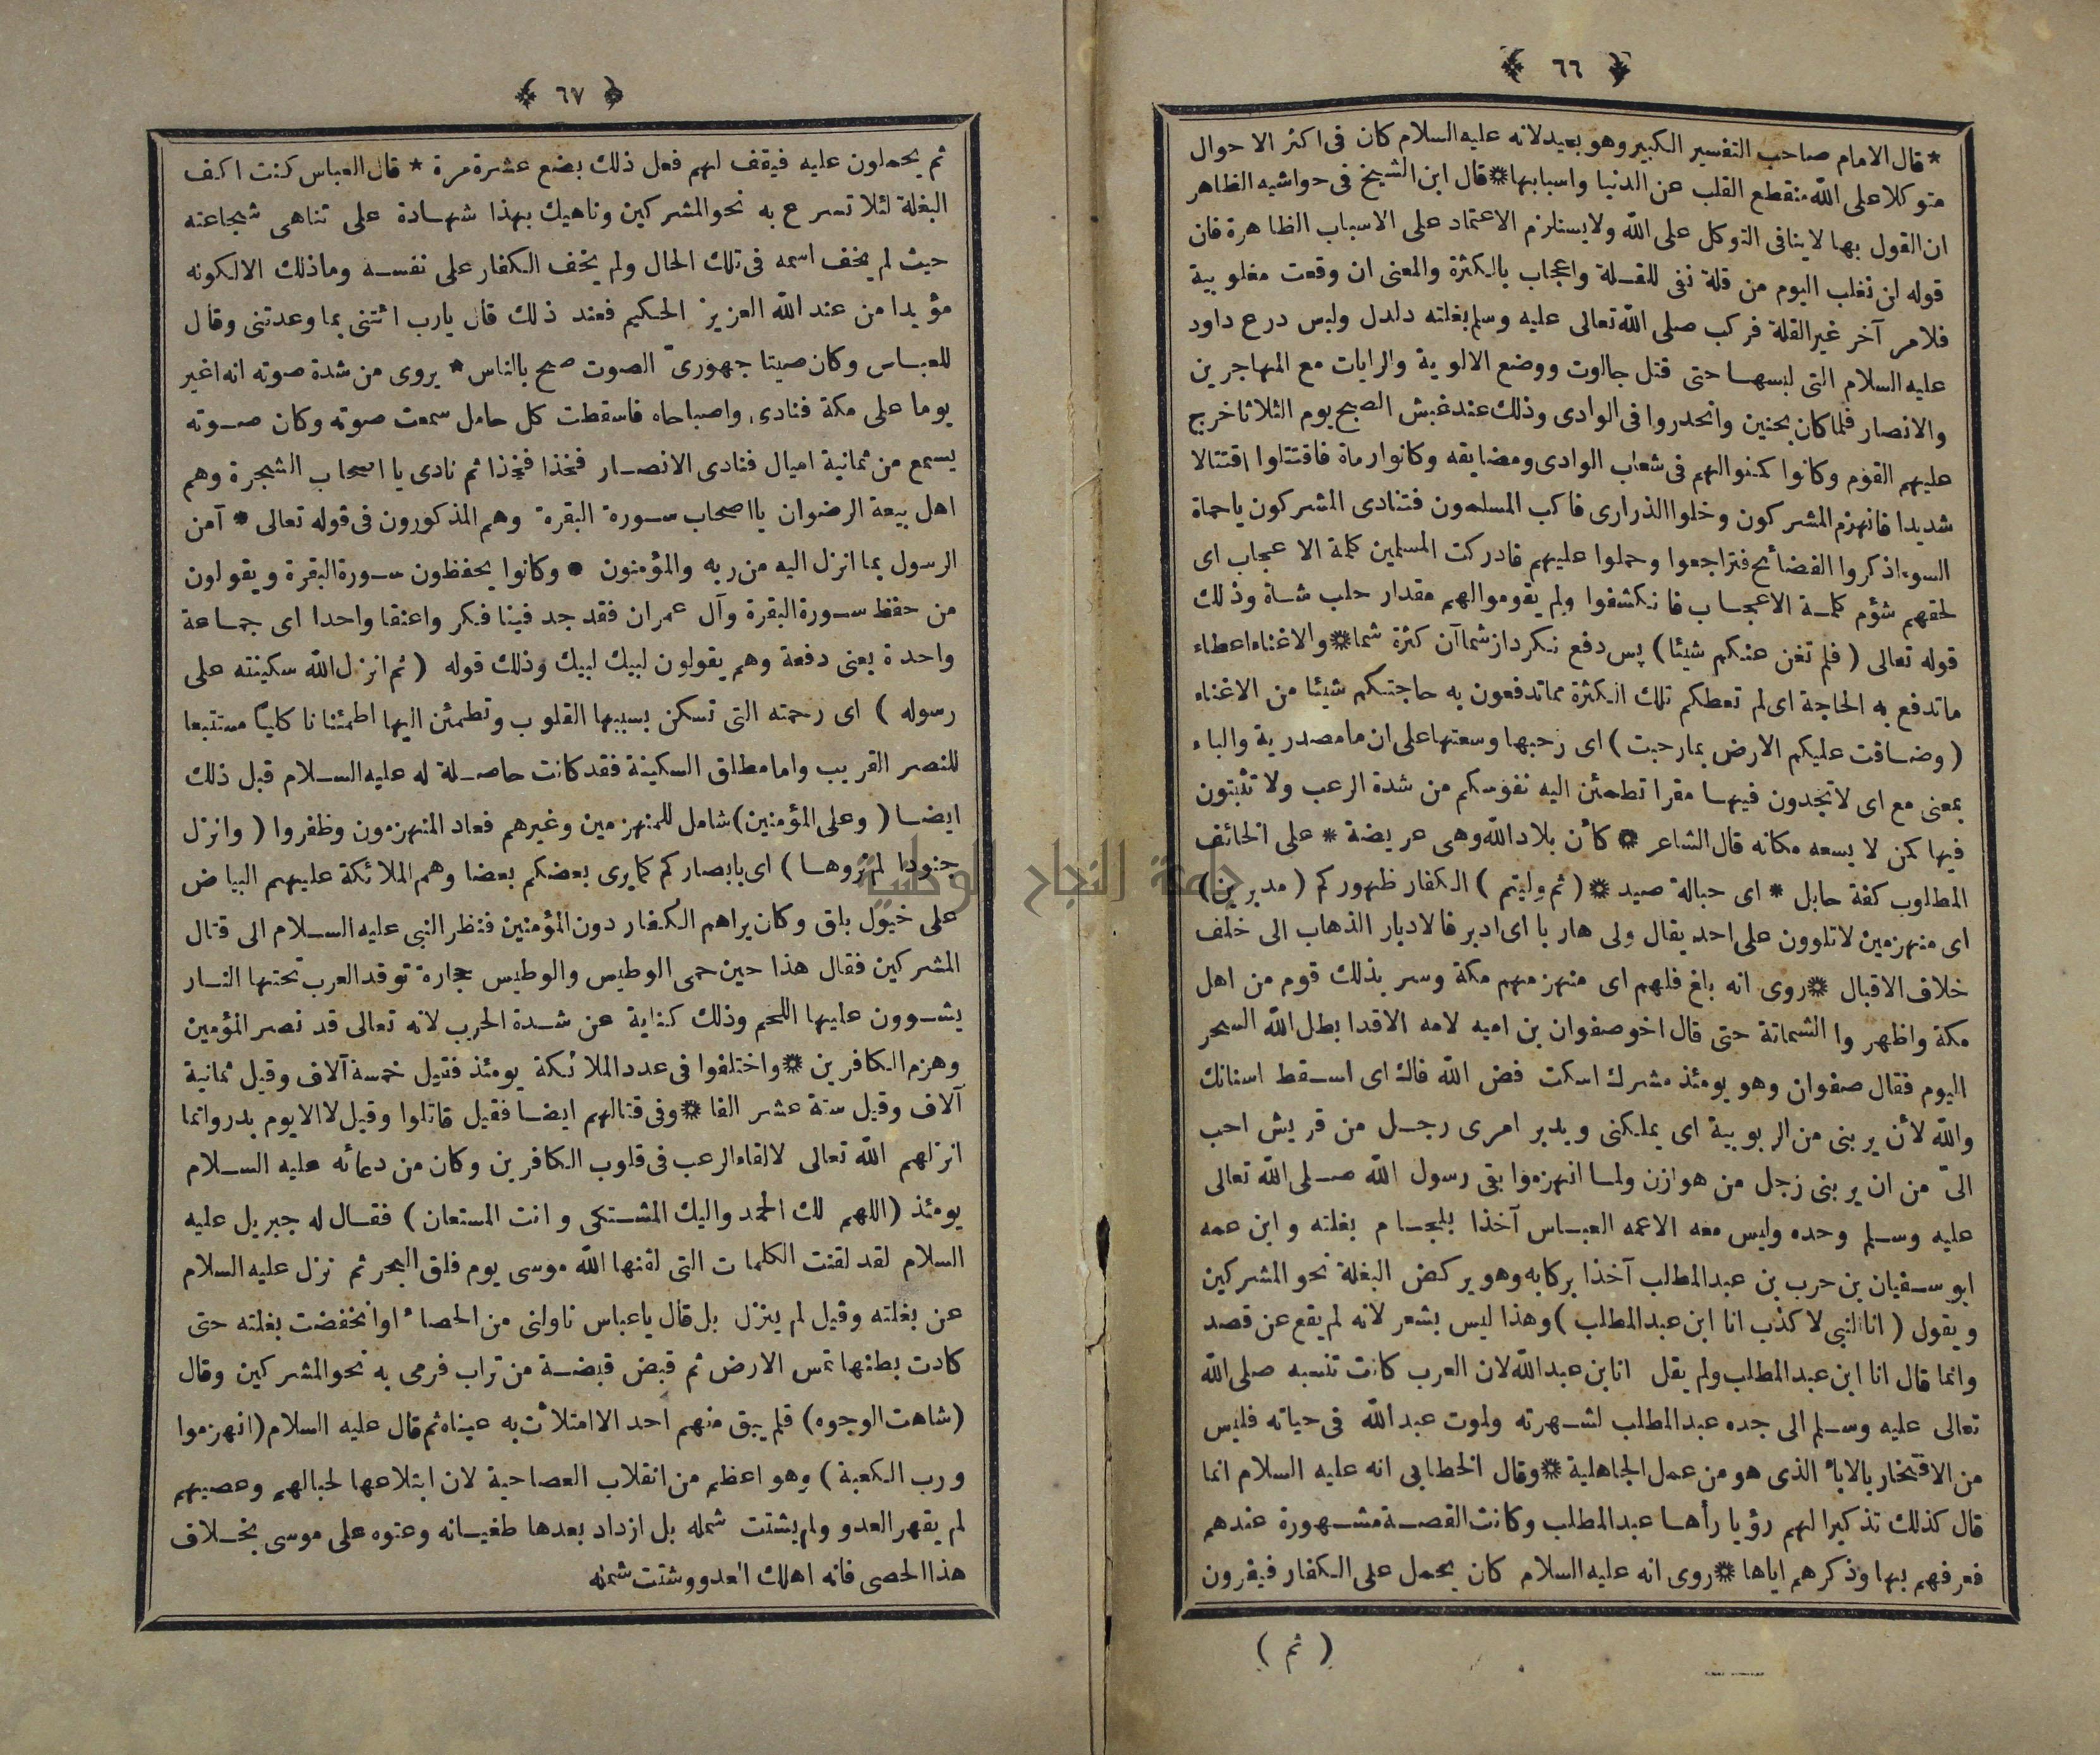 ﴿ ٦٦ ﴾
* قال الامام صاحب التفسير الكبير وهو بعيد لانه عليه السلام كان فى اكثر الاحوال
متوكلا على الله منقطع القلب عن الدنيا واسبابها * قال ابن الشيخ فى حواشيه الظاهر
ان القول بها لا ينافى التوكل على الله ولا يستلزم الاعتماد على الاسباب الظاهرة فان
قوله لن نغلب اليوم من قلة نفى للقلة واعجاب بالكثرة والمعنى ان وقعت مغلوبية
فلامر آخر غير القلة فركب صلى الله تعالى عليه وسلم بغلته دلدل ولبس درع داود
عليه السلام التى لبسها حتى قتل جالوت ووضع الالوية والرايات مع المهاجرين
والانصار فلما كان بحنين وانحدروا فى الوادى وذلك عند غبش الصبح يوم الثلاثا خرج
عليهم القوم وكانوا كمنوا لهم فى شعاب الوادى ومضايقه وكانوا رماة فاقتتلوا اقتتالا
شديدا فانهزم المشركون وخلوا الذرارى فاكب المسلمون فتنادى المشركون يا حماة
السوء اذكروا الفضائح فتراجعوا وحملوا عليهم فادركت المسلمين كلمة الاعجاب اى
لحقهم شؤم كلمة الاعجاب فانكشفوا ولم يقوموا لهم مقدار حلب شاة وذلك
قوله تعالى ( فلم تغن عنكم شيئا ) پس دفع نكرد از شما آن كثرة شما * والاغناء اعطاء
ما تدفع به الحاجة اى لم تعطكم تلك الكثرة مما تدفعون به حاجتكم شيئا من الاغناء
( وضاقت عليكم الارض بما رحبت ) اى رحبها وسعتها على ان ما مصدرية والباء
بمعنى مع اى لا تجدون فيها مقرا تطمئن اليه نفوسكم من شدة الرعب ولا تثبتون
فيها كمن لا يسعه مكانه قال الشاعر * كأن بلاد الله وهى عريضة * على الخائف
المطلوب كفة حابل * اى حبالة صيد * ( ثم وليتم ) الكفار ظهوركم ( مدبرين )
اى منهزمين لا تلوون على احد يقال ولى هاربا اى ادبر فالادبار الذهاب الى خلف
خلاف الاقبال * روى انه بلغ فلهم اى منهزمهم مكة وسر بذلك قوم من اهل
مكة واظهروا الشماتة حتى قال اخو صفوان بن اميه لامه الا قد ابطل الله السحر
اليوم فقال صفوان وهو يومئذ مشرك اسكت فض الله فاك اى اسقط اسنانك
والله لأن يربنى من الربوبية اى يملكنى ويدبر امرى رجل من قريش احب
الىّ من ان يربنى رجل من هوازن ولما انهزموا بقى رسول الله صلى الله تعالى
عليه وسلم وحده وليس معه الا عمه العباس آخذا بلجام بغلته وابن عمه
ابو سفيان بن حرب بن عبد المطلب آخذا بركابه وهو يركض البغلة نحو المشركين
ويقول ( انا النبى لا كذب انا ابن عبد المطلب ) وهذا ليس بشعر لانه لم يقع عن قصد
وانما قال انا ابن عبد المطلب ولم يقل انا بن عبد الله لان العرب كانت تنسبه صلى الله
تعالى عليه وسلم الى جده عبد المطلب لشهرته ولموت عبد الله فى حياته فليس
من الافتخار بالاباء الذى هو من عمل الجاهلية * وقال الخطابى انه عليه السلام انما
قال كذلك تذكيرا لهم رؤيا رأها عبد المطلب وكانت القصة مشهورة عندهم
فعرفهم بها وذكرهم اياها * روى انه عليه السلام كان يحمل على الكفار فيفرون
( ثم )
﴿ ٦٧ ﴾
ثم يحملون عليه فيقف لهم فعل ذلك بضع عشرة مرة * قال العباس كنت اكف
البغلة لئلا تسرع به نحو المشركين وناهيك بهذا شهادة على تناهى شجاعته
حيث لم يخف اسمه فى تلك الحال ولم يخف الكفار على نفسه وما ذلك الا لكونه
مؤيدا من عند الله العزيز الحكيم فعند ذلك قال يارب ائتنى بما وعدتنى وقال
للعباس وكان صيتا جهورىّ الصوت صح بالناس * يروى من شدة صوته انه اغير
يوما على مكة فنادى واصباحاه فاسقطت كل حامل سمعت صوته وكان صوته
يسمع من ثمانية اميال فنادى الانصار فخذا فخذا ثم نادى يا اصحاب الشجرة وهم
اهل بيعة الرضوان يا اصحاب سورة البقرة وهم المذكورون فى قوله تعالى * آمن
الرسول بما انزل اليه من ربه والمؤمنون * وكانوا يحفظون سورة البقرة ويقولون
من حفظ سورة البقرة وآل عمران فقد جد فينا فكر واعنقا واحدا اى جماعة
واحدة يعنى دفعة وهم يقولون لبيك لبيك وذلك قوله ( ثم انزل الله سكينته على
رسوله ) اى رحمته التى تسكن بسببها القلوب وتطمئن اليها اطمئنانا كليا مستتبعا
للنصر القريب واما مطلق السكينة فقد كانت حاصلة له عليه السلام قبل ذلك
ايضا ( وعلى المؤمنين ) شامل للمنهزمين وغيرهم فعاد المنهزمون وظفروا ( وانزل
جنودا لم تروها ) اى بابصاركم كما يرى بعضكم بعضا وهم الملائكة عليهم البياض
على خيول بلق وكان يراهم الكفار دون المؤمنين فنظر النبى عليه السلام الى قتال
المشركين فقال هذا حين حمى الوطيس والوطيس حجارة توقد العرب تحتها النار
يشوون عليها اللحم وذلك كناية عن شدة الحرب لانه تعالى قد نصر المؤمنين
وهزم الكافرين * واختلفوا فى عدد الملائكة يومئذ فقيل خمسة آلاف وقيل ثمانية
آلاف وقيل ستة عشر الفا * وفى قتالهم ايضا فقيل قاتلوا وقيل لا الا يوم بدر وانما
انزلهم الله تعالى لالقاء الرعب فى قلوب الكافرين وكان من دعائه عليه السلام
يومئذ ( اللهم لك الحمد واليك المشتكى وانت المستعان ) فقال له جبريل عليه
السلام لقد لقنت الكلمات التى لقنها الله موسى يوم فلق البحر ثم نزل عليه السلام
عن بغلته وقيل لم ينزل بل قال يا عباس ناولنى من الحصاء او انخفضت بغلته حتى
كادت بطنها تمس الارض ثم قبض قبضة من تراب فرمى به نحو المشركين وقال
( شاهت الوجوه ) فلم يبق منهم احد الا امتلأت به عيناه ثم قال عليه السلام ( انهزموا
ورب الكعبة ) وهو اعظم من انقلاب العصا حية لان ابتلاعها لحبالهم وعصيهم
لم يقهر العدو ولم يشتت شمله بل ازداد بعدها طغيانه وعتوه على موسى بخلاف
هذا الحصى فانه اهلك العدو وشتت شمله
جامعة النجاح الوطنية